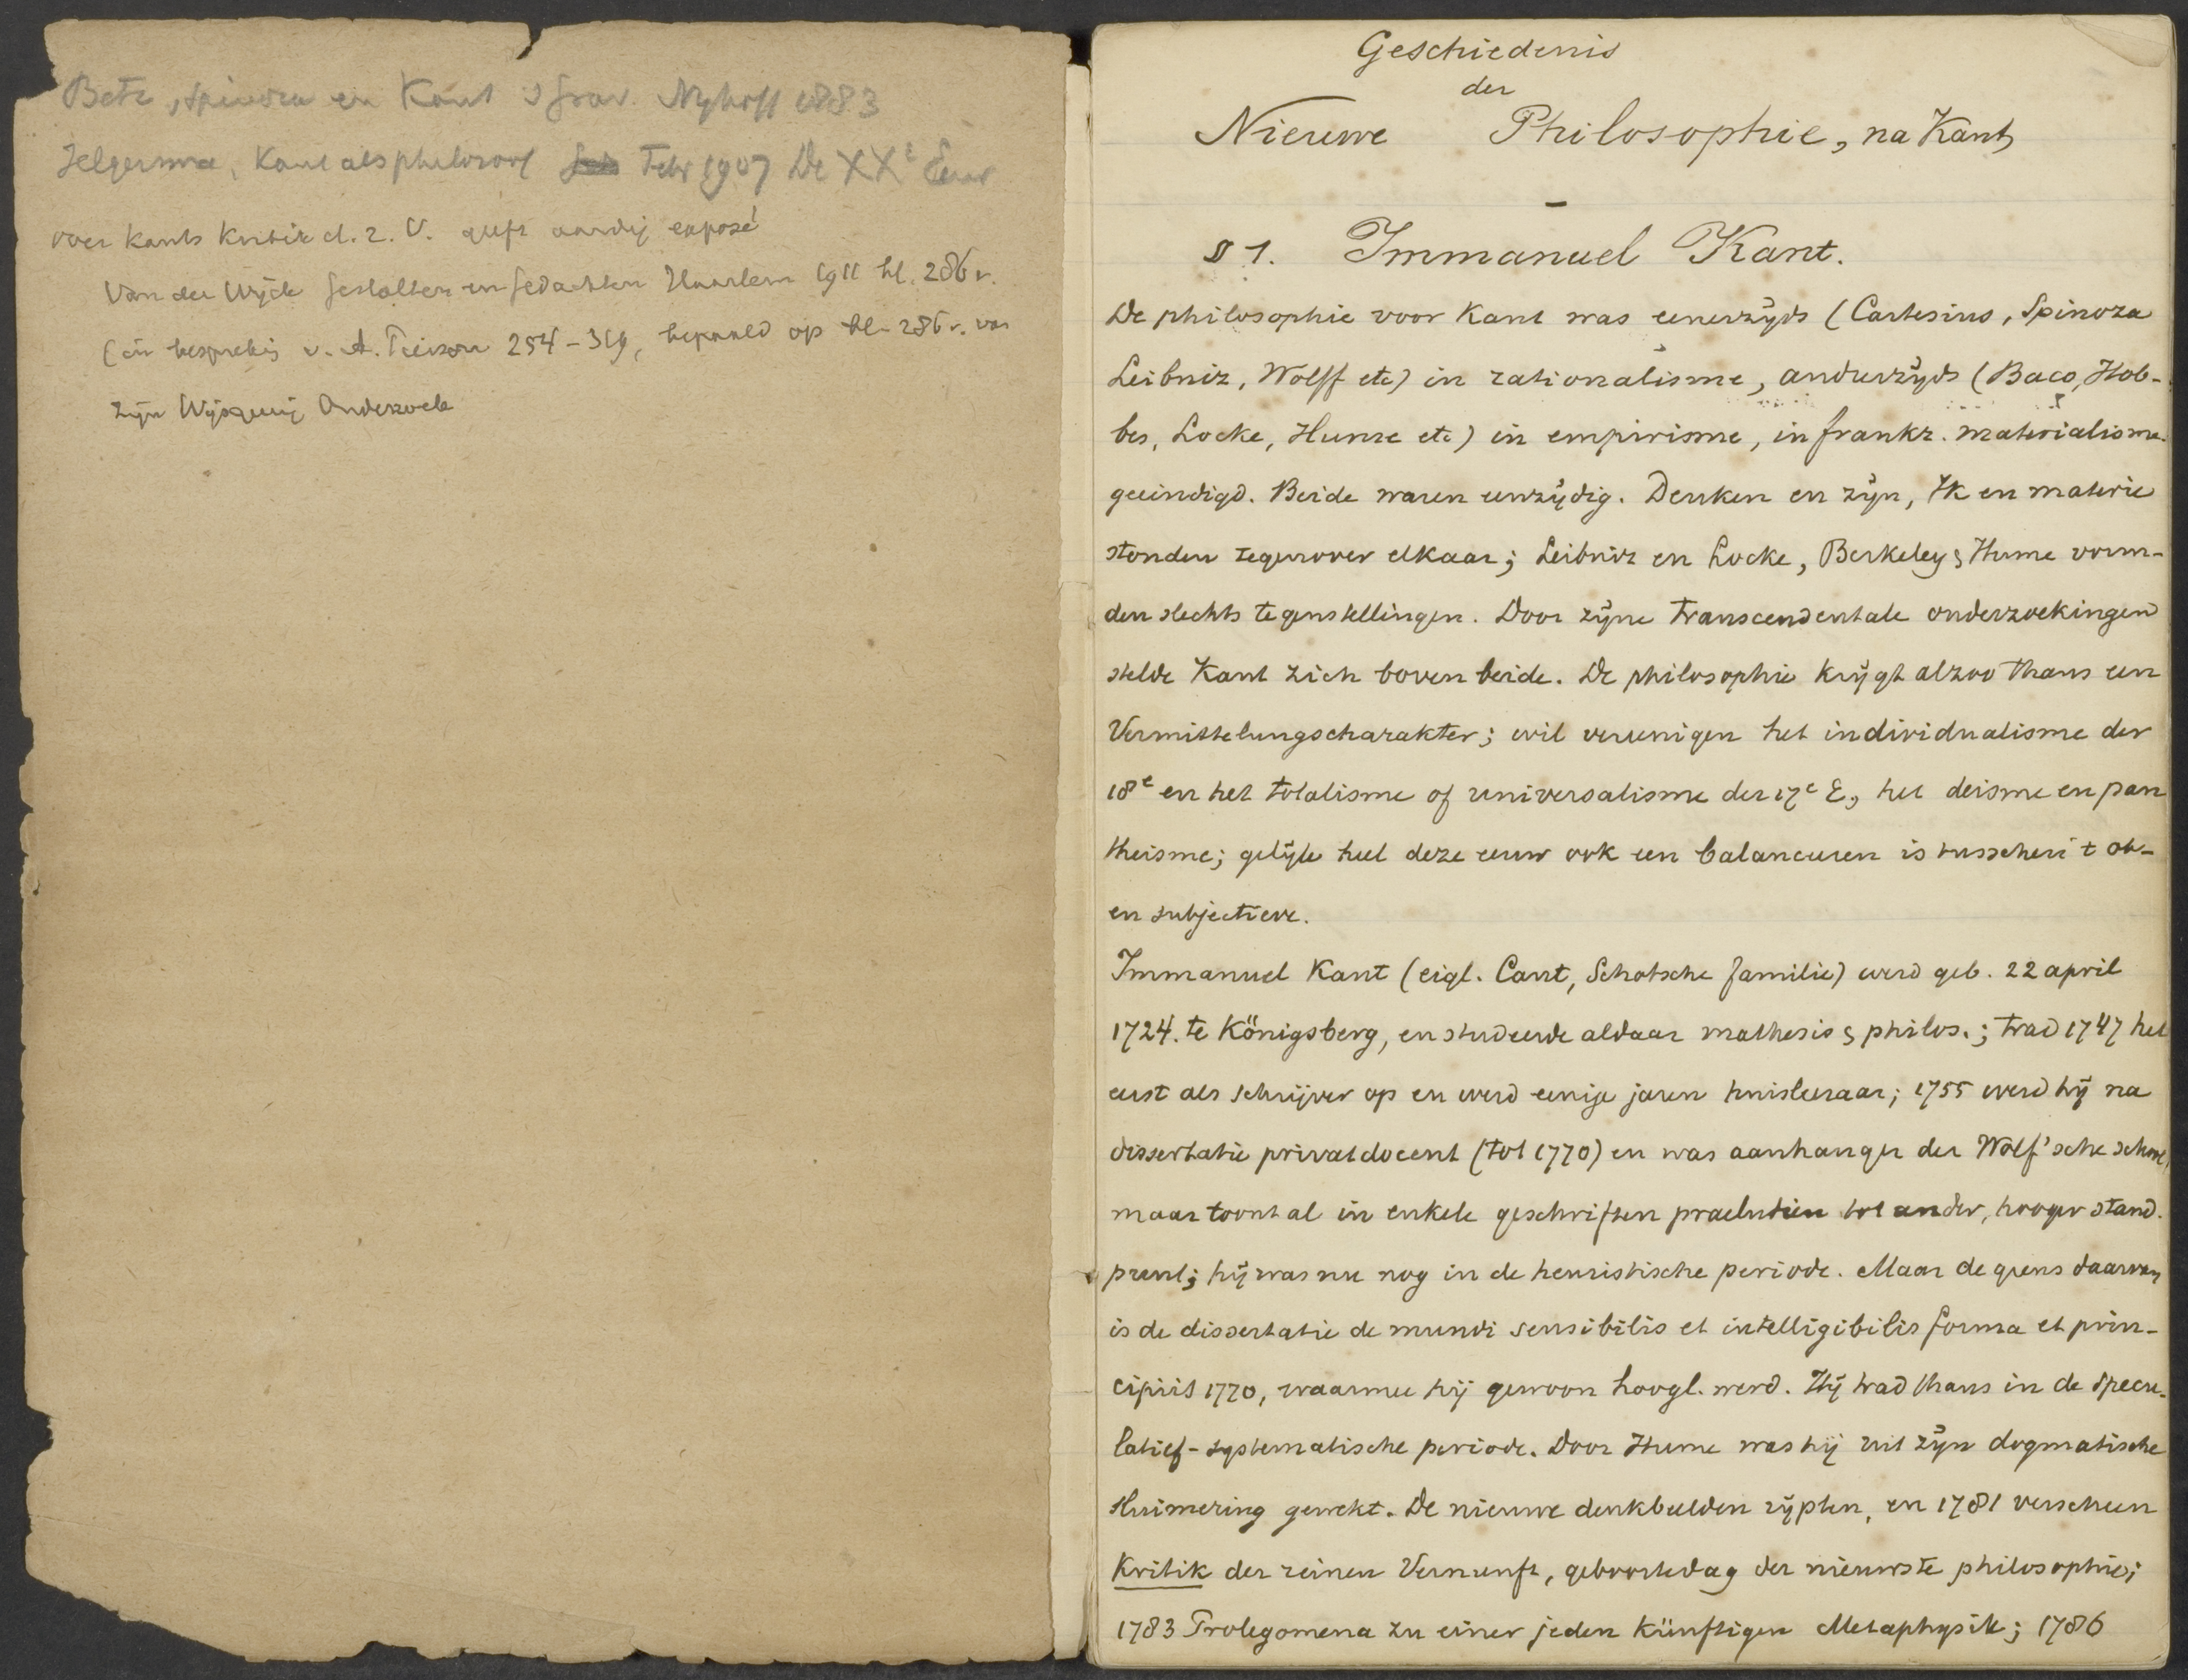 Betz, Spinoza en Kant 's Grav. Nyhoff 1883
Jelgersma, Kant als philosoof Febr 1907 De XXe Eeuw
over Kants Kritik d. r. V. geeft aardig exposé
Van der Wijck Gestalten en Gedachten Haarlem 1911 bl. 286 v.
(in besprekig v. A. Pierson 254-319, bepaald op bl. 286 v. van
zijn Wijsgeerig Onderzoek
Geschiedenis
der
Nieuwe Philosophie, na Kant
§ 1. Immanuel Kant.
De philosophie voor Kant was eenerzijds (Cartesius, Spinoza
Leibniz, Wolff etc) in rationalisme, anderzijds (Baco, Hob-
bes, Locke, Hume etc) in empirisme, in frankr. materialisme
geeindigd. Beide waren eenzijdig. Denken en zijn, Ik en materie
stonden tegenover elkaar; Leibniz en Locke, Berkeley & Hume vorm-
den slechts tegenstellingen. Door zijne transcendentale onderzoekingen
stelde Kant zich boven beide. De philosophie krijgt alzoo thans een
Vermittelungscharakter; wil vereenigen het individualisme der
18e en het totalisme of universalisme der 17e E, het deisme en pan
theisme; gelijk heel deze eeuw ook een balanceeren is tusschen 't ob-
en subjectieve.
Immanuel Kant (eigl. Cant, Schotsche familie) werd geb. 22 april
1724. te Königsberg, en studeerde aldaar mathesis & philos.; trad 1747 het
eerst als schrijver op en werd eenige jaren huisleeraar; 1755 werd hij na
dissertatie privatdocent (tot 1770) en was aanhanger der Wolf'sche school,
maar toont al in enkele geschriften praeludien tot ander, hooger stand-
punt; hij was nu nog in de heuristische periode. Maar de grens daarvan
is de dissertatie de mundi sensibilis et intelligibilis forma et prin-
cipiis 1770, waarmee hij gewoon hoogl. werd. Hij trad thans in de specu-
latief-systematische periode. Door Hume was hij uit zijn dogmatische
sluimering gewekt. De nieuwe denkbeelden rijpten, en 1781 verscheen
Kritik der reinen Vernunft, geboortedag der nieuwste philosophie;
1783 Prolegomena zu einer jeden künftigen Metaphysik; 1786